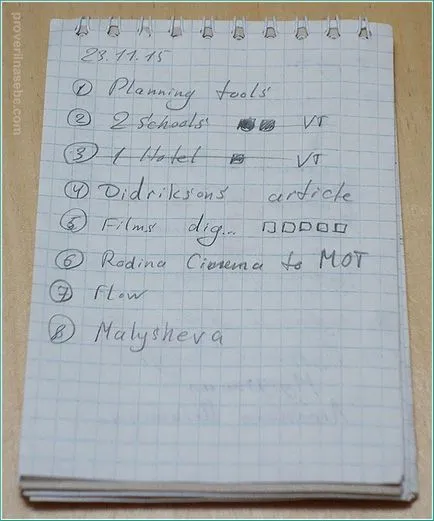 23.11.15
1 Planning tools
2 2 Schools VT
3 1 Hotel VT
4 Didriksons article
5 Films dig...
6 Rodina Cinema to MOT
7 Flow
8 Malysheva
proverinasebe.com